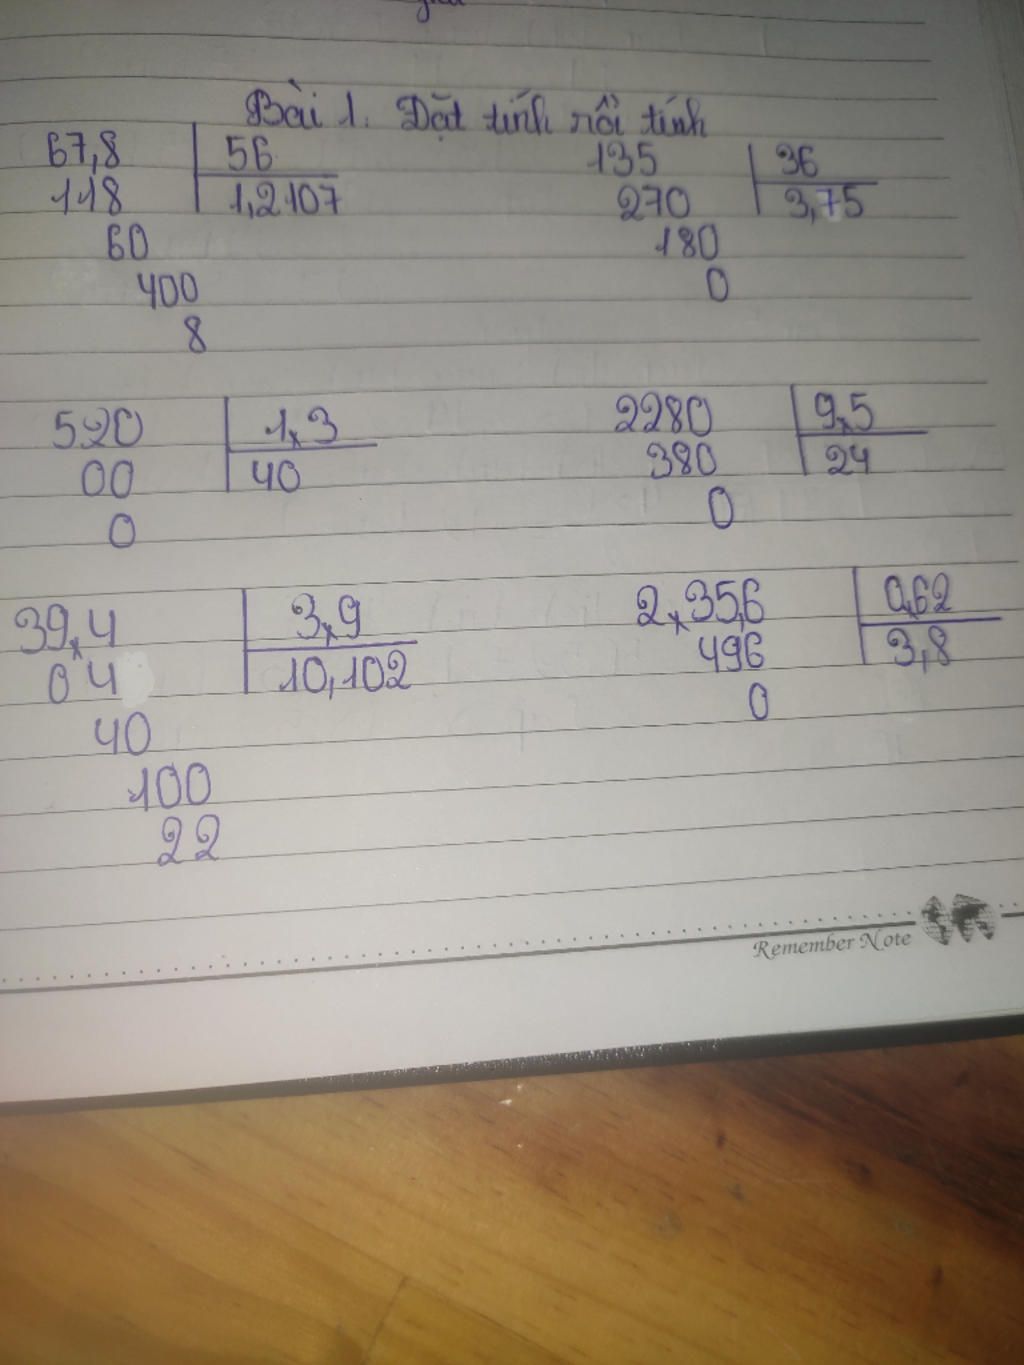 Bài 1. Đặt tính rồi tính
67,8 56
118 1,2107
60
400
8
135 36
270 3,75
180
0
520 1,3
00 40
0
2280 9,5
380 24
0
39,4 3,9
04 10,102
40
100
22
2,35,6 0,62
496 3,8
0
Remember Note